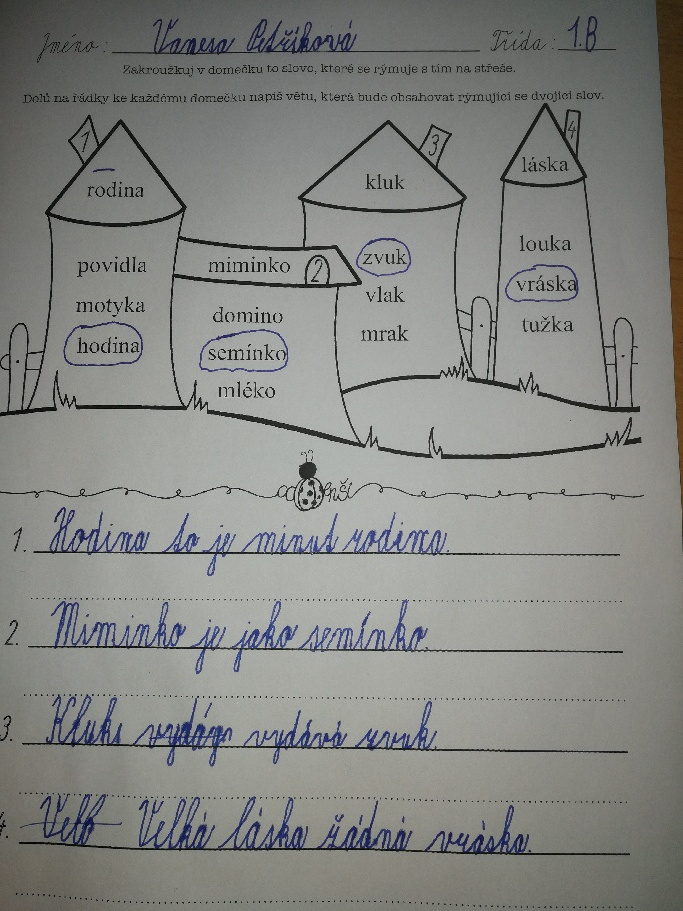 Jméno: Vanesa Petříková Třída: 1.B
Zakroužkuj v domečku to slovo, které se rýmuje s tím na střeše.
Dolů na řádky ke každému domečku napiš větu, která bude obsahovat rýmující se dvojici slov.
1
rodina
povidla
motyka
hodina
miminko 2
domino
semínko
mléko
3
kluk
zvuk
vlak
mrak
4
láska
louka
vráska
tužka
1. Hodina to je minut rodina.
2. Miminko je jako semínko.
3. Kluk vydává zvuk.
4. Velb Velká láska žádná vráska.